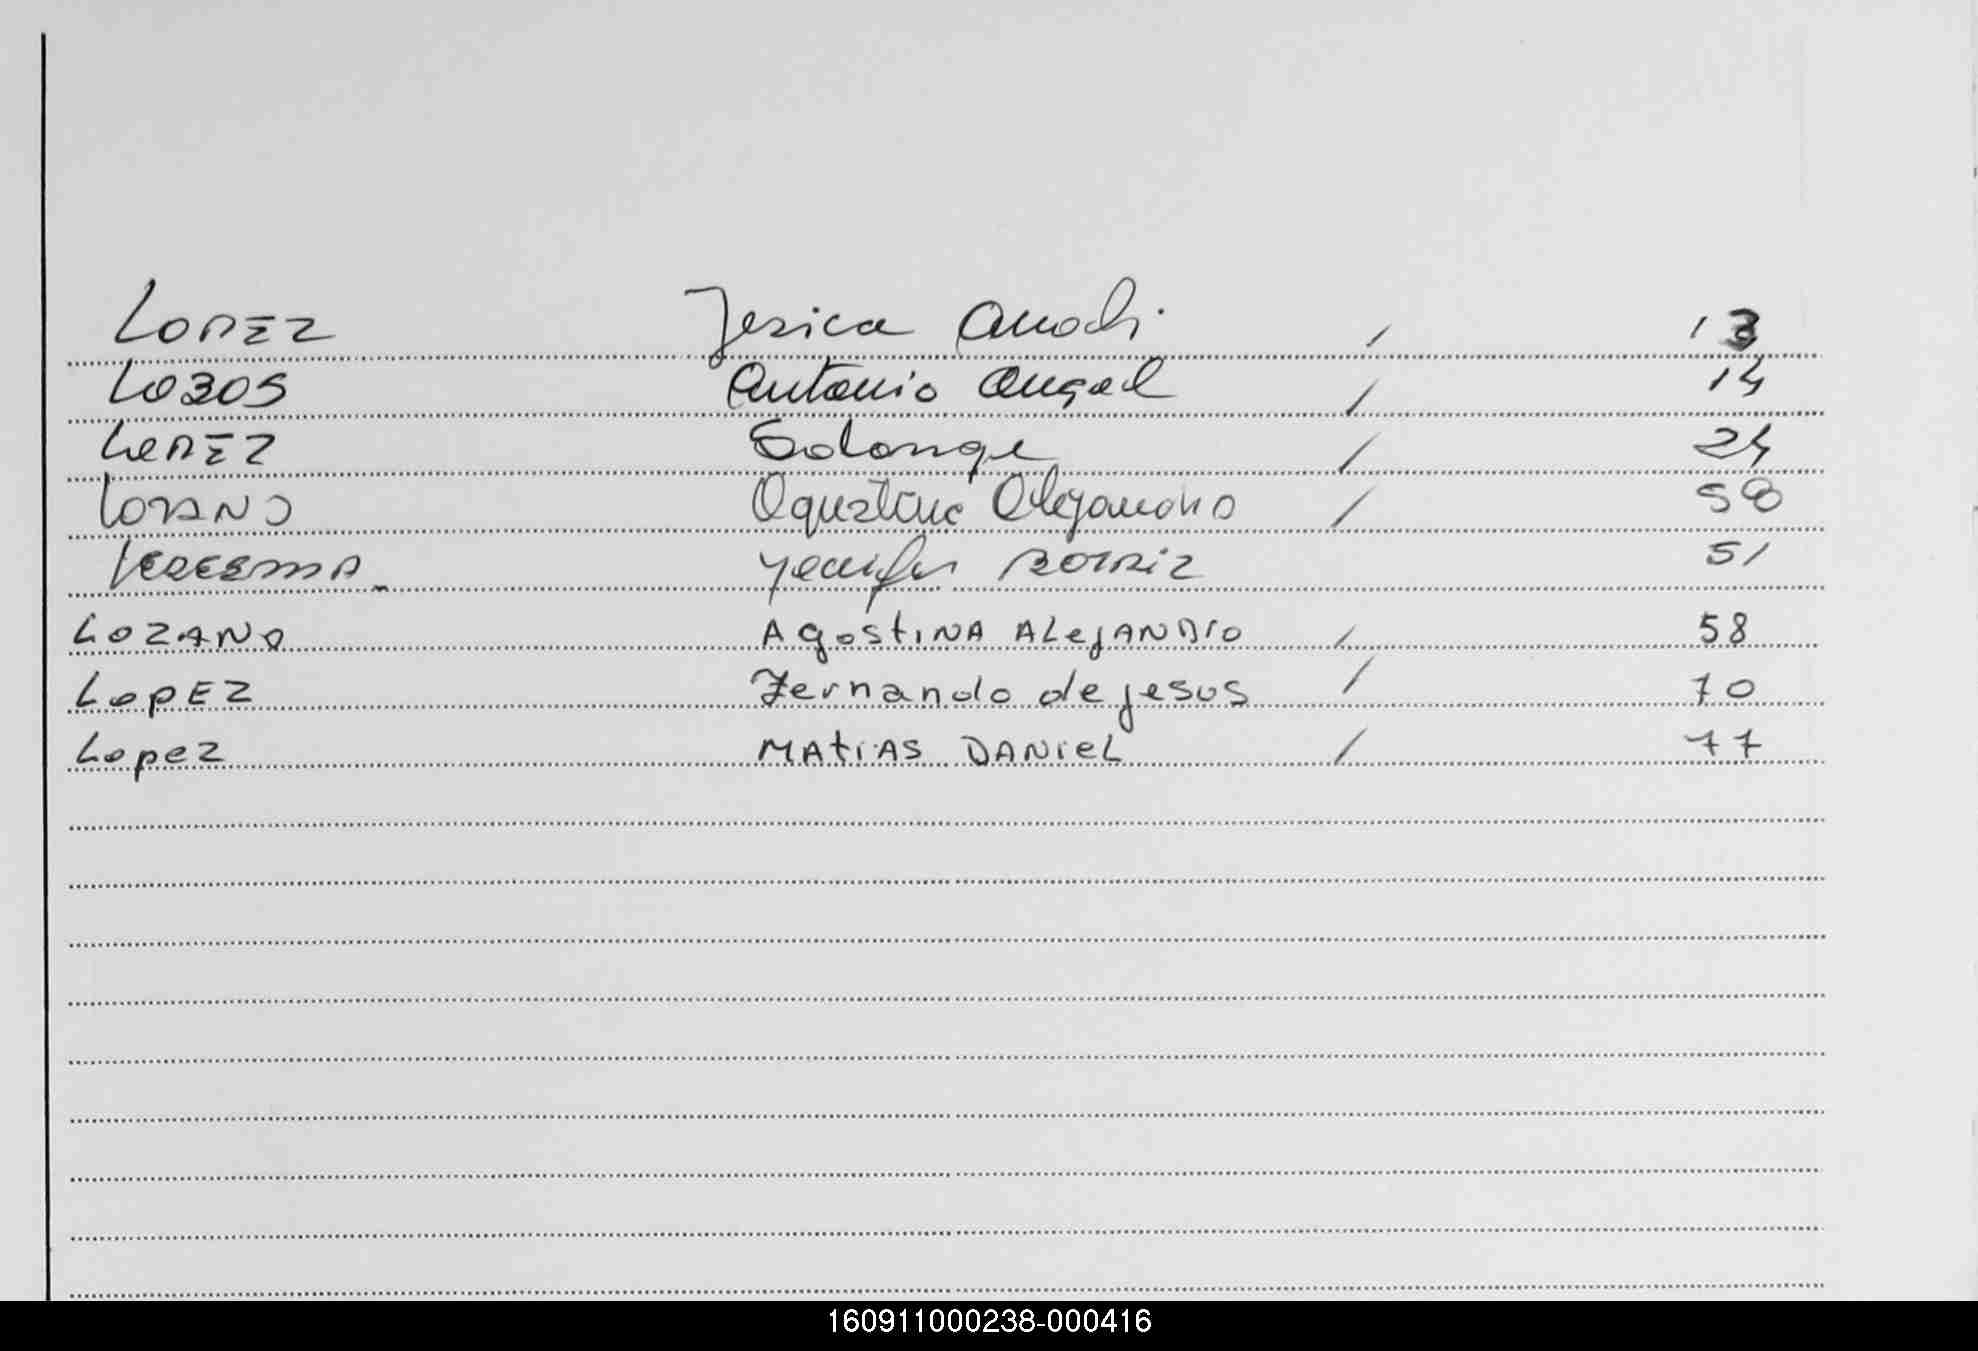 LOPEZ Jesica Anahi / 13
LOBOS Antonio Angel / 14
LOPEZ Solange / 24
LOZANO Alejandro / 58
51
LOZANO AgostiNA ALejANDrO / 58
LOPEZ Fernando de jesus / 70
Lopez MAtiAS DANieL / 77
160911000238-000416